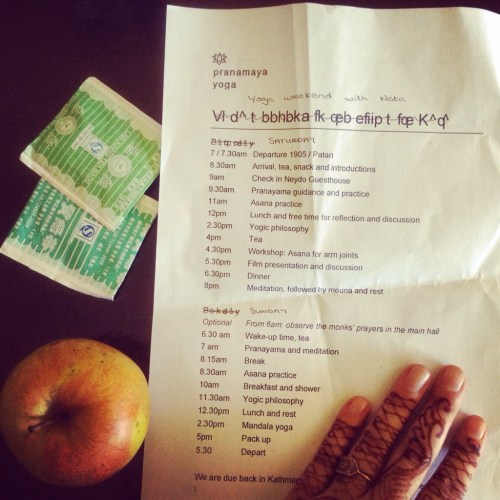 pranamaya
yoga
Yoga weekend with Naka
SATURDAY
7 / 7.30am Departure 1905 / Patan
8.30am Arrival, tea, snack and introductions
9am Check in Neydo Guesthouse
9.30am Pranayama guidance and practice
11am Asana practice
12pm Lunch and free time for reflection and discussion
2.30pm Yogic philosophy
4pm Tea
4.30pm Workshop: Asana for arm joints
5.30pm Film presentation and discussion
6.30pm Dinner
8pm Meditation, followed by mouna and rest
SUNDAY
Optional From 6am: observe the monks' prayers in the main hall
6.30 am Wake-up time, tea
7 am Pranayama and meditation
8.15am Break
8.30am Asana practice
10am Breakfast and shower
11.30am Yogic philosophy
12.30pm Lunch and rest
2.30pm Mandala yoga
5pm Pack up
5.30 Depart
We are due back in